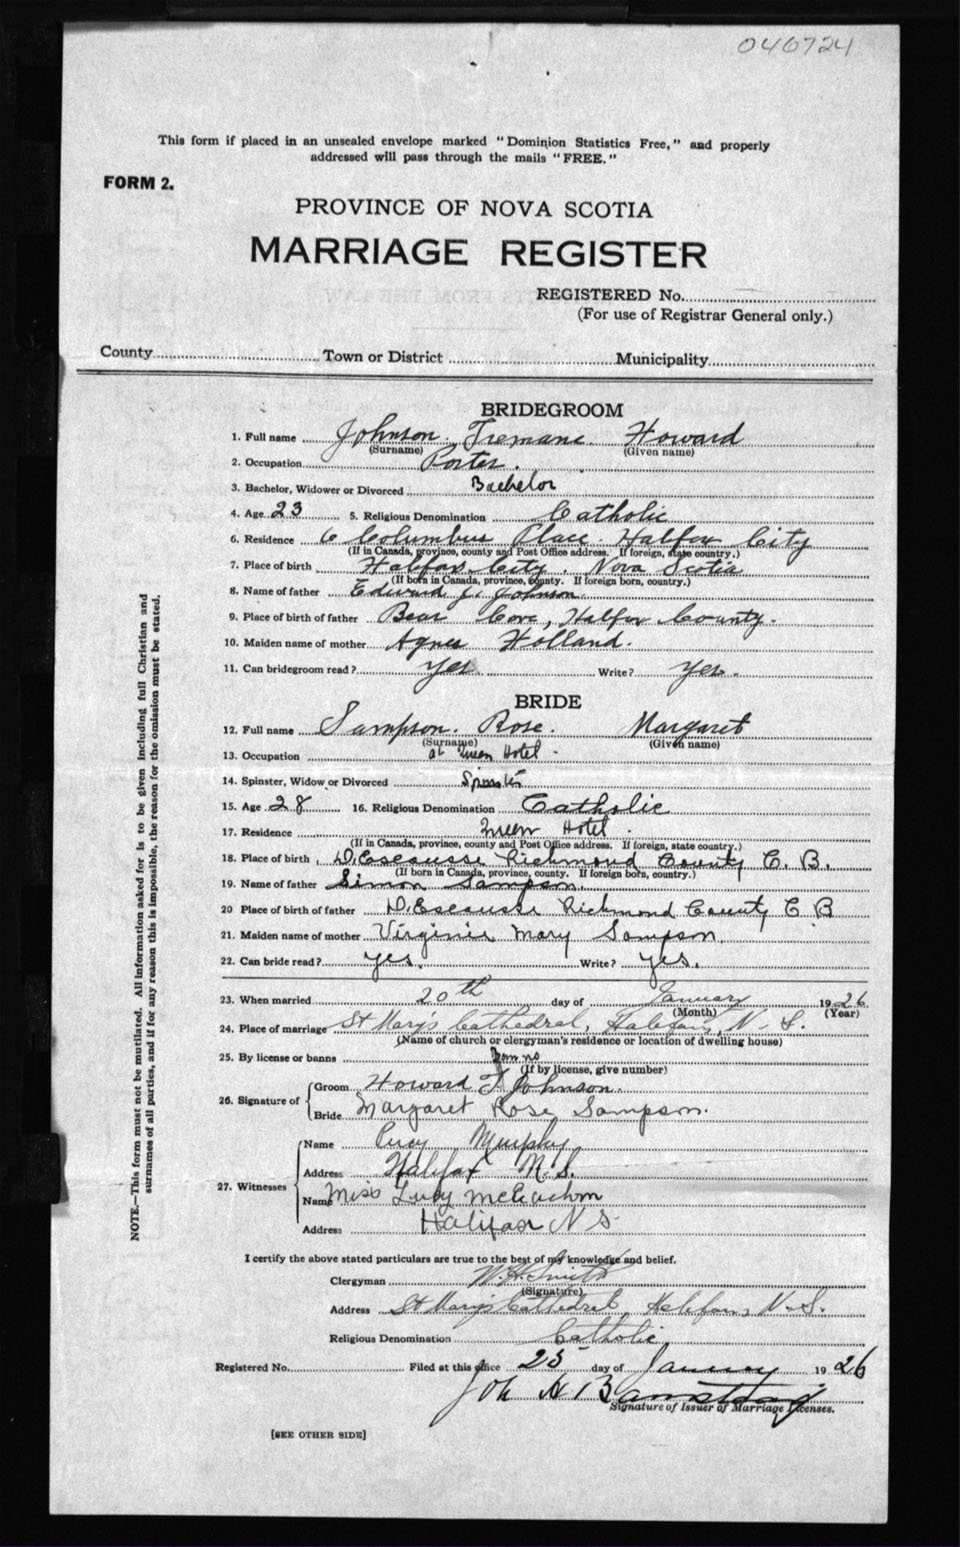 040724
This form if placed in an unsealed envelope marked "Dominion Statistics Free," and properly
addressed will pass through the mails "FREE."
FORM 2.
PROVINCE OF NOVA SCOTIA
MARRIAGE REGISTER
REGISTERED No.
(For use of Registrar General only.)
County Town or District Municipality
BRIDEGROOM
1. Full name Johnson. Tremane. Howard
(Surname) (Given name)
2. Occupation Porter.
3. Bachelor, Widower or Divorced Bachelor
4. Age 23 5. Religious Denomination Catholic
6. Residence 6 Columbus Place. Halfax City
(If in Canada, province, county and Post Office address. If foreign, state country.)
7. Place of birth Halifax City. Nova Scotia
(If born in Canada, province, county. If foreign born, country.)
8. Name of father Edward J. Johnson.
9. Place of birth of father Bear Cove, Halfax County.
10. Maiden name of mother Agnes Holland.
11. Can bridegroom read? Yes. Write? Yes.
BRIDE
12. Full name Sampson. Rose. Margaret
(Surname) (Given name)
13. Occupation at Queen Hotel
14. Spinster, Widow or Divorced Spinster
15. Age 28 16. Religious Denomination Catholic
17. Residence Queen Hotel.
(If in Canada, province, county and Post Office address. If foreign, state country.)
18. Place of birth D'Escousse Richmond County C. B.
(If born in Canada, province, county. If foreign born, country.)
19. Name of father Simon Sampson.
20 Place of birth of father D'Escousse Richmond County C B
21. Maiden name of mother Virginie Mary Sampson.
22. Can bride read? yes. Write? yes.
23. When married 20th day of January 1926
(Month) (Year)
24. Place of marriage St Mary's Cathedral, Halifax, N-S.
(Name of church or clergyman's residence or location of dwelling house)
25. By license or banns Banns
(If by license, give number)
26. Signature of Groom Howard T Johnson.
Bride Margaret Rose Sampson.
27. Witnesses Name Percy Murphy
Address Halifax N.S.
Name Miss Lucy McEachern
Address Halifax N S.
I certify the above stated particulars are true to the best of my knowledge and belief.
Clergyman W. H. Smith
(Signature)
Address St Mary's Cathedral, Halifax, N-S.
Religious Denomination Catholic
Registered No. Filed at this office 25 day of January 1926
Signature of Issuer of Marriage Licenses.
[SEE OTHER SIDE]
NOTE.—This form must not be mutilated. All information asked for is to be given including full Christian and
surnames of all parties, and if for any reason this is impossible, the reason for the omission must be stated.